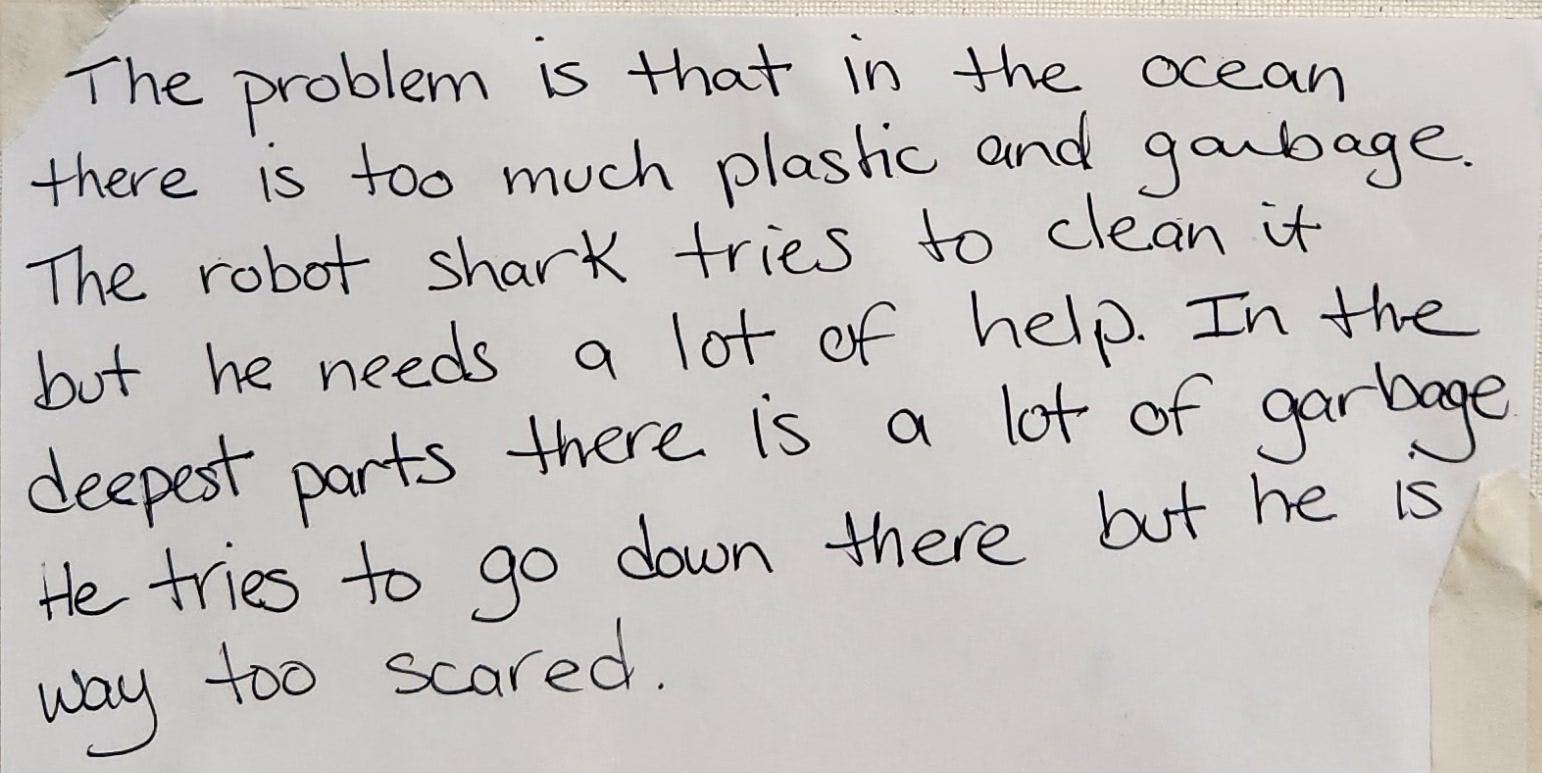 The problem is that in the ocean
there is too much plastic and garbage.
The robot shark tries to clean it
but he needs a lot of help. In the
deepest parts there is a lot of garbage.
He tries to go down there but he is
way too scared.